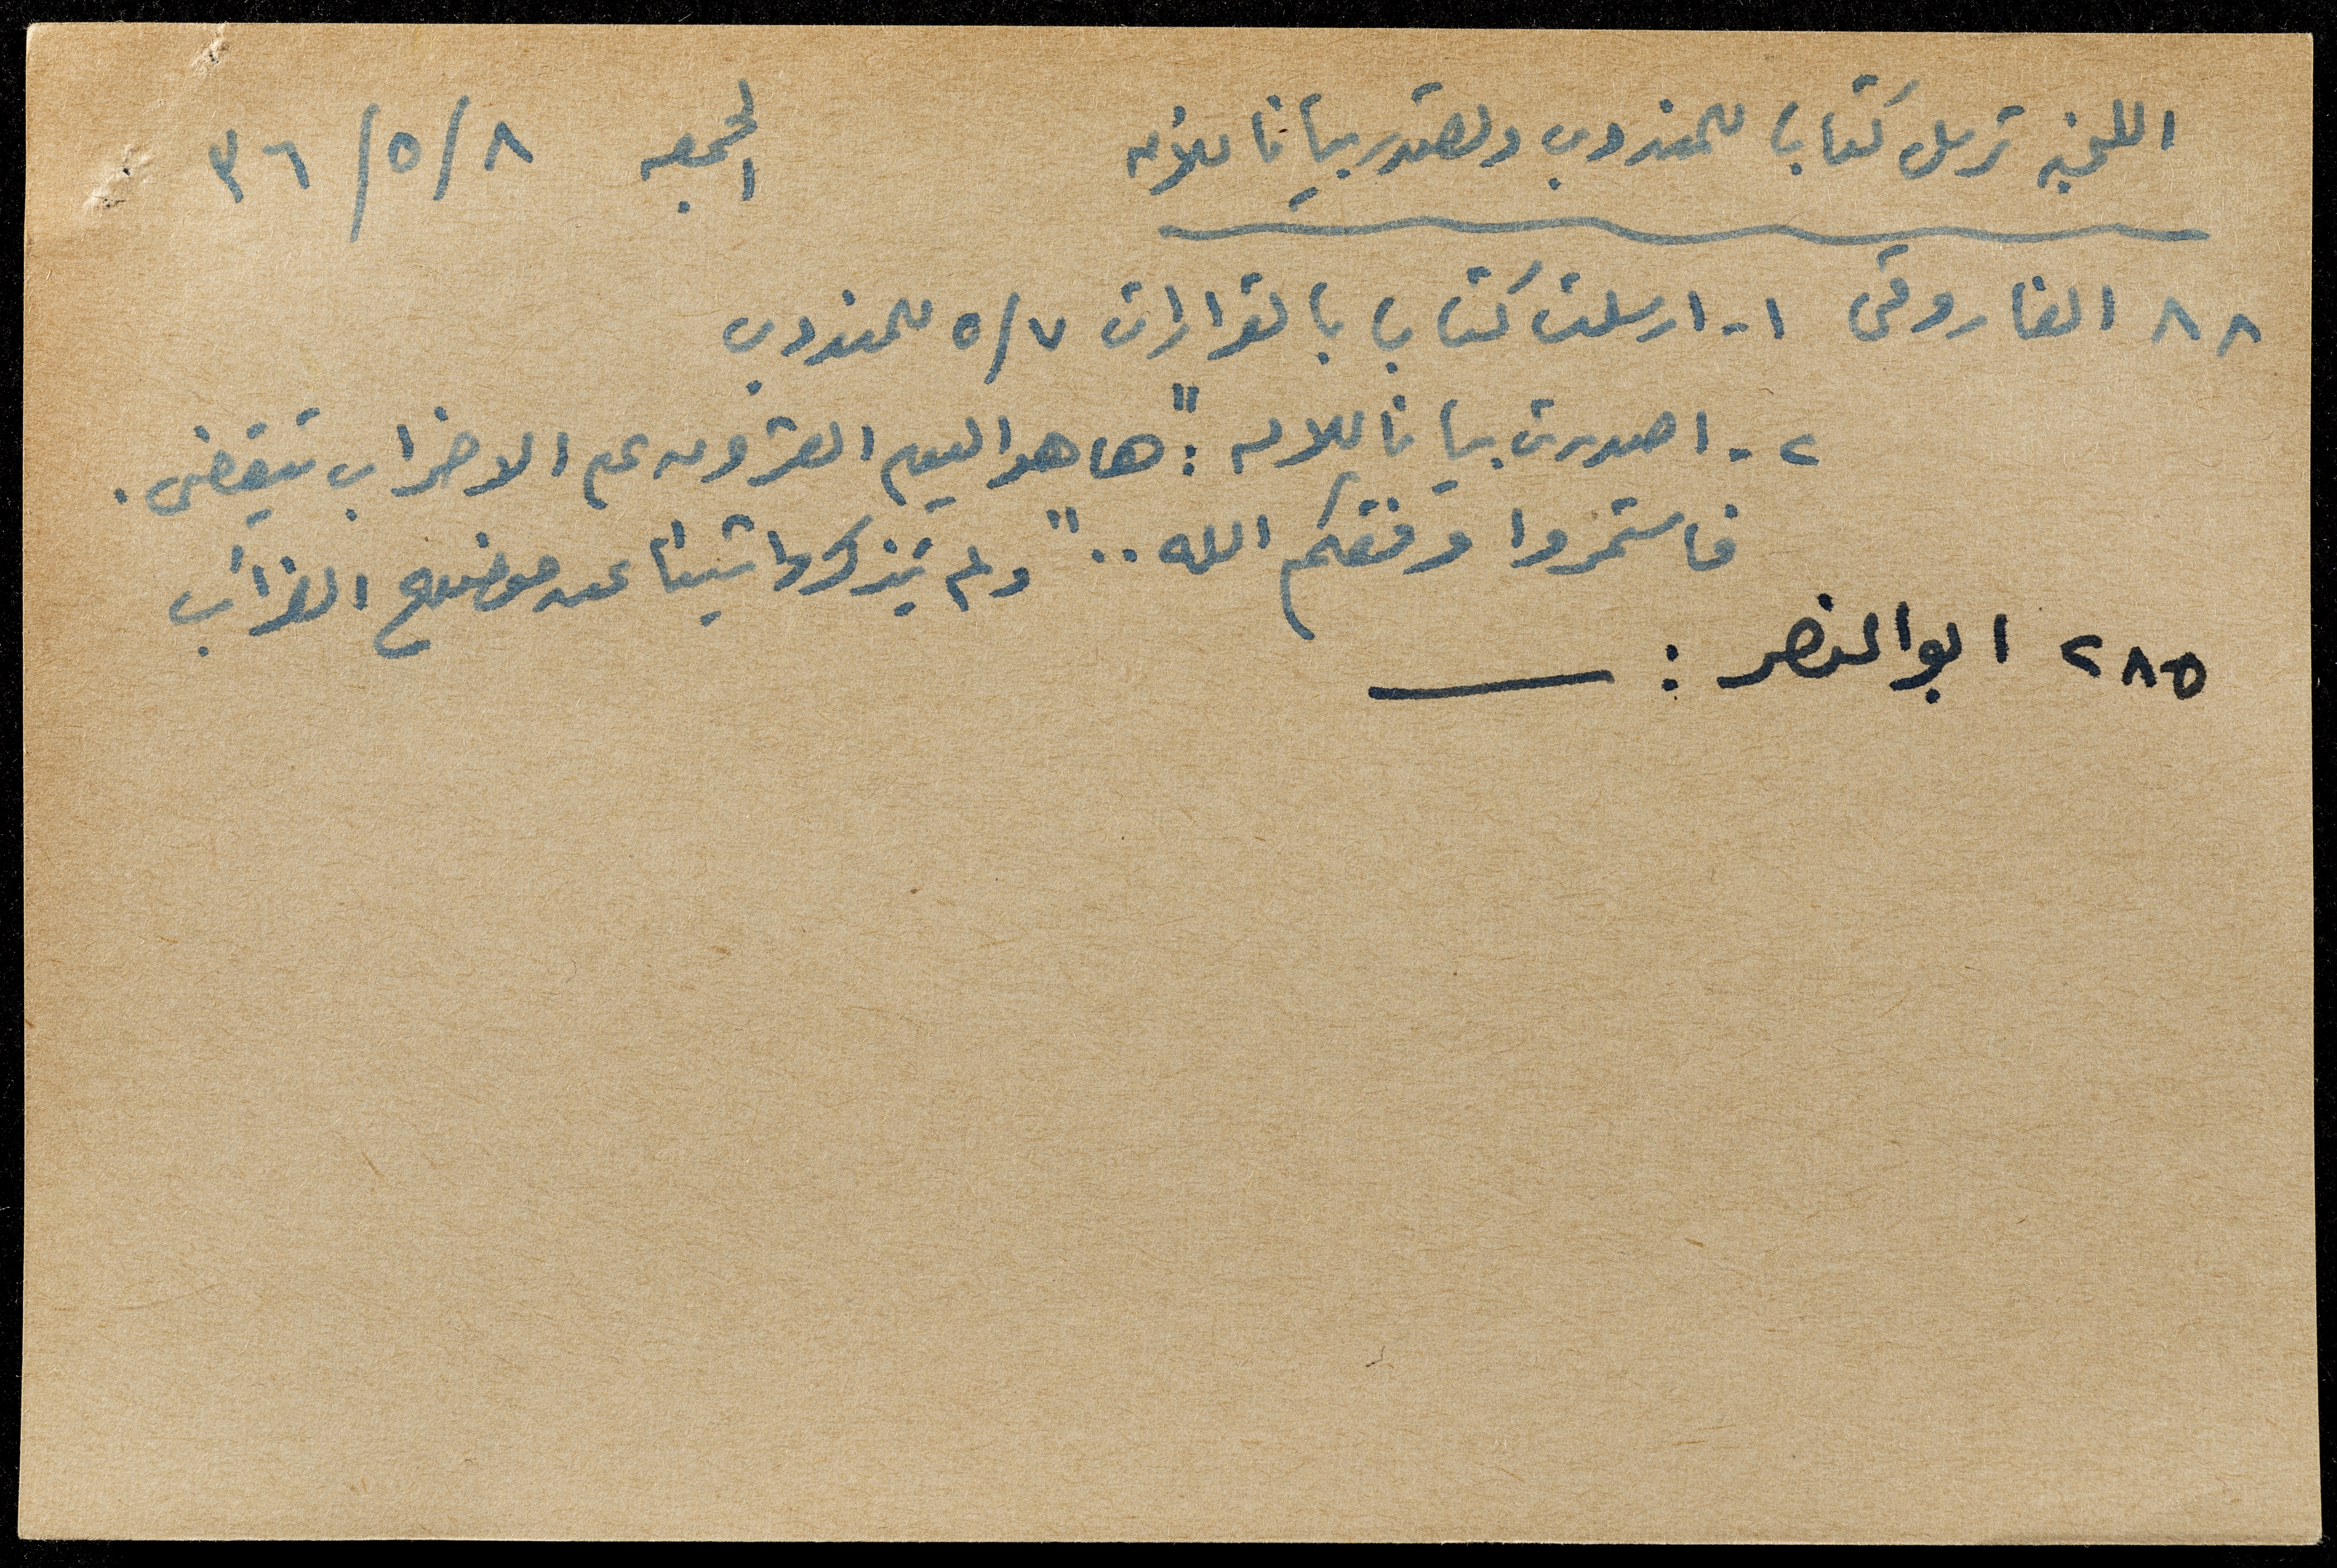 اللجنه ترسل كتابا للمندوب وتصدر بيانا للامه الجمعه ٨/٥/٣٦
٨٨ الفاروقى ١- ارسلت كتابا بالقرارات ٥/٧ للمندوب
٢- اصدرت بيانا للامه : "ها هو اليوم العشرون على الاضراب ينقضى .
فاستمروا وفقكم الله .." ولم يذكروا شيئا عن موضوع الضرائب
٢٨٥ ابو النصر : ــــ